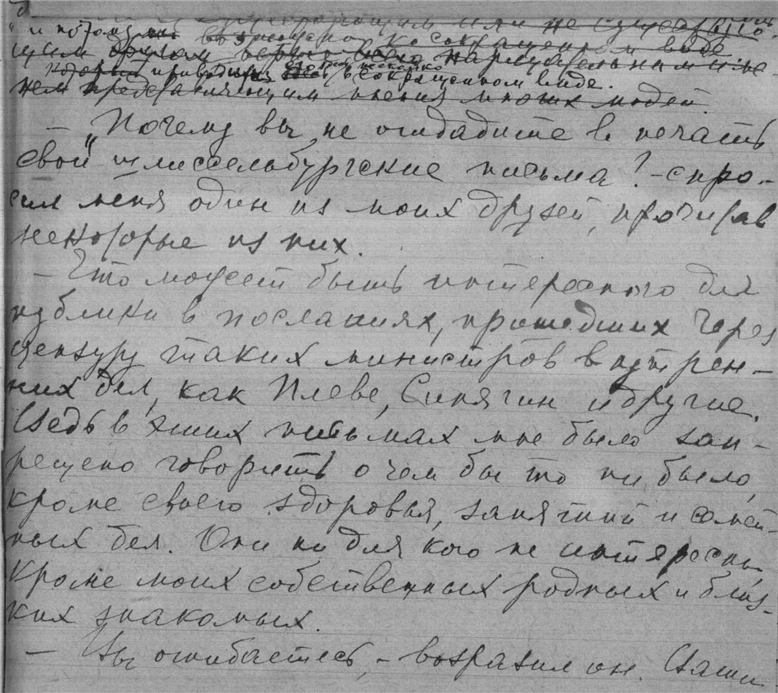 и потому
в сокращенном виде
нем представляющим мнения многих людей.
— "Почему вы не отдадите в печать
свои шлиссельбургские письма? — спро-
сил меня один из моих друзей, прочитав
некоторые из них.
— Что может быть интересного для
публики в посланиях, прошедших через
цензуру таких министров внутрен-
них дел, как Плеве, Сипягин и другие.
Ведь в этих письмах мне было зап-
рещено говорить о чем бы то ни было,
кроме своего здоровья, занятий и семей-
ных дел. Они ни для кого не интересны,
кроме моих собственных родных и близ-
ких знакомых.
— Вы ошибаетесь, — возразил он. Ваши